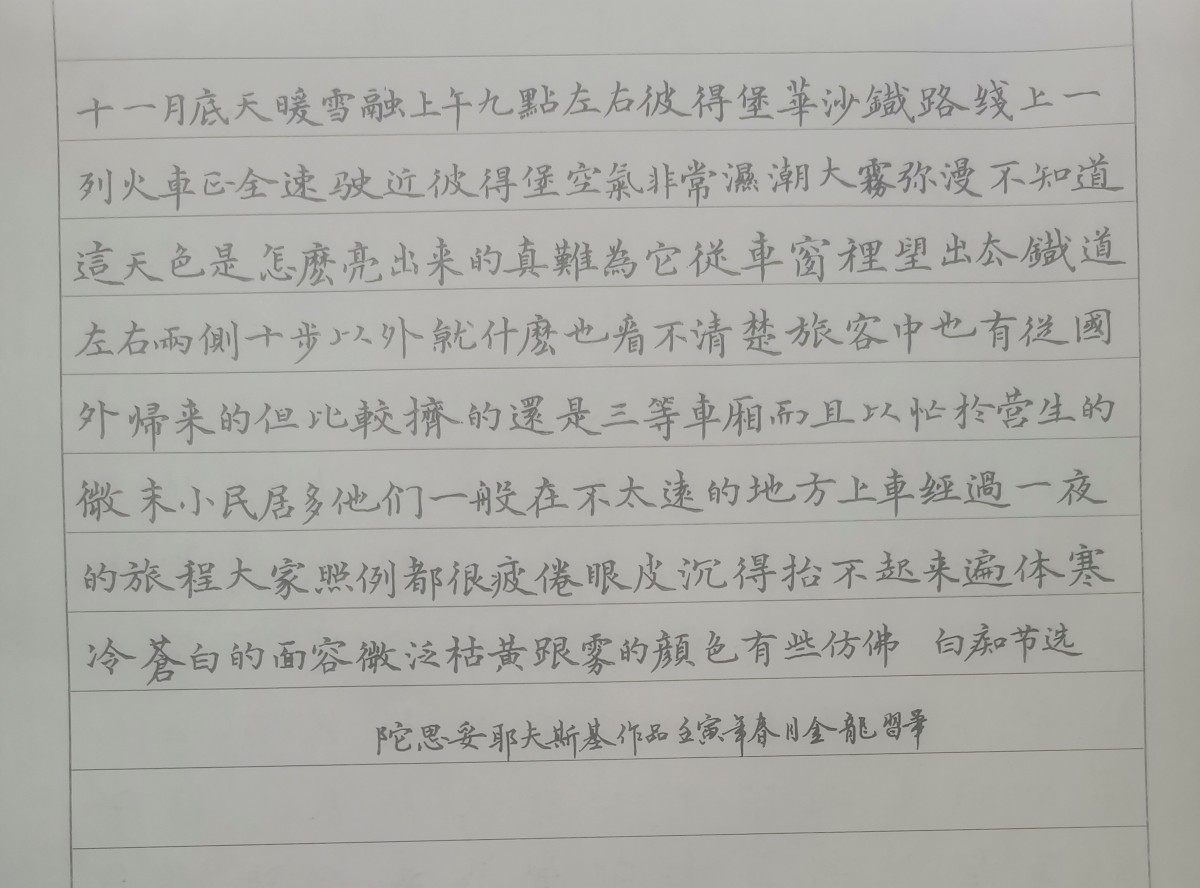 十一月底天暖雪融上午九點左右彼得堡華沙鐵路线上一
列火車正全速驶近彼得堡空氣非常濕潮大霧弥漫不知道
這天色是怎麽亮出来的真難為它從車窗裡望出去鐵道
左右兩側十步以外就什麽也看不清楚旅容中也有從國
外帰来的但比較擠的還是三等車厢而且以忙於营生的
微末小民居多他们一般在不太遠的地方上車經過一夜
的旅程大家照例都很疲倦眼皮沉得抬不起来遍体寒
冷蒼白的面容微泛枯黃跟雾的顔色有些仿佛 白痴节选
陀思妥耶夫斯基作品壬寅年春月金龍習筆